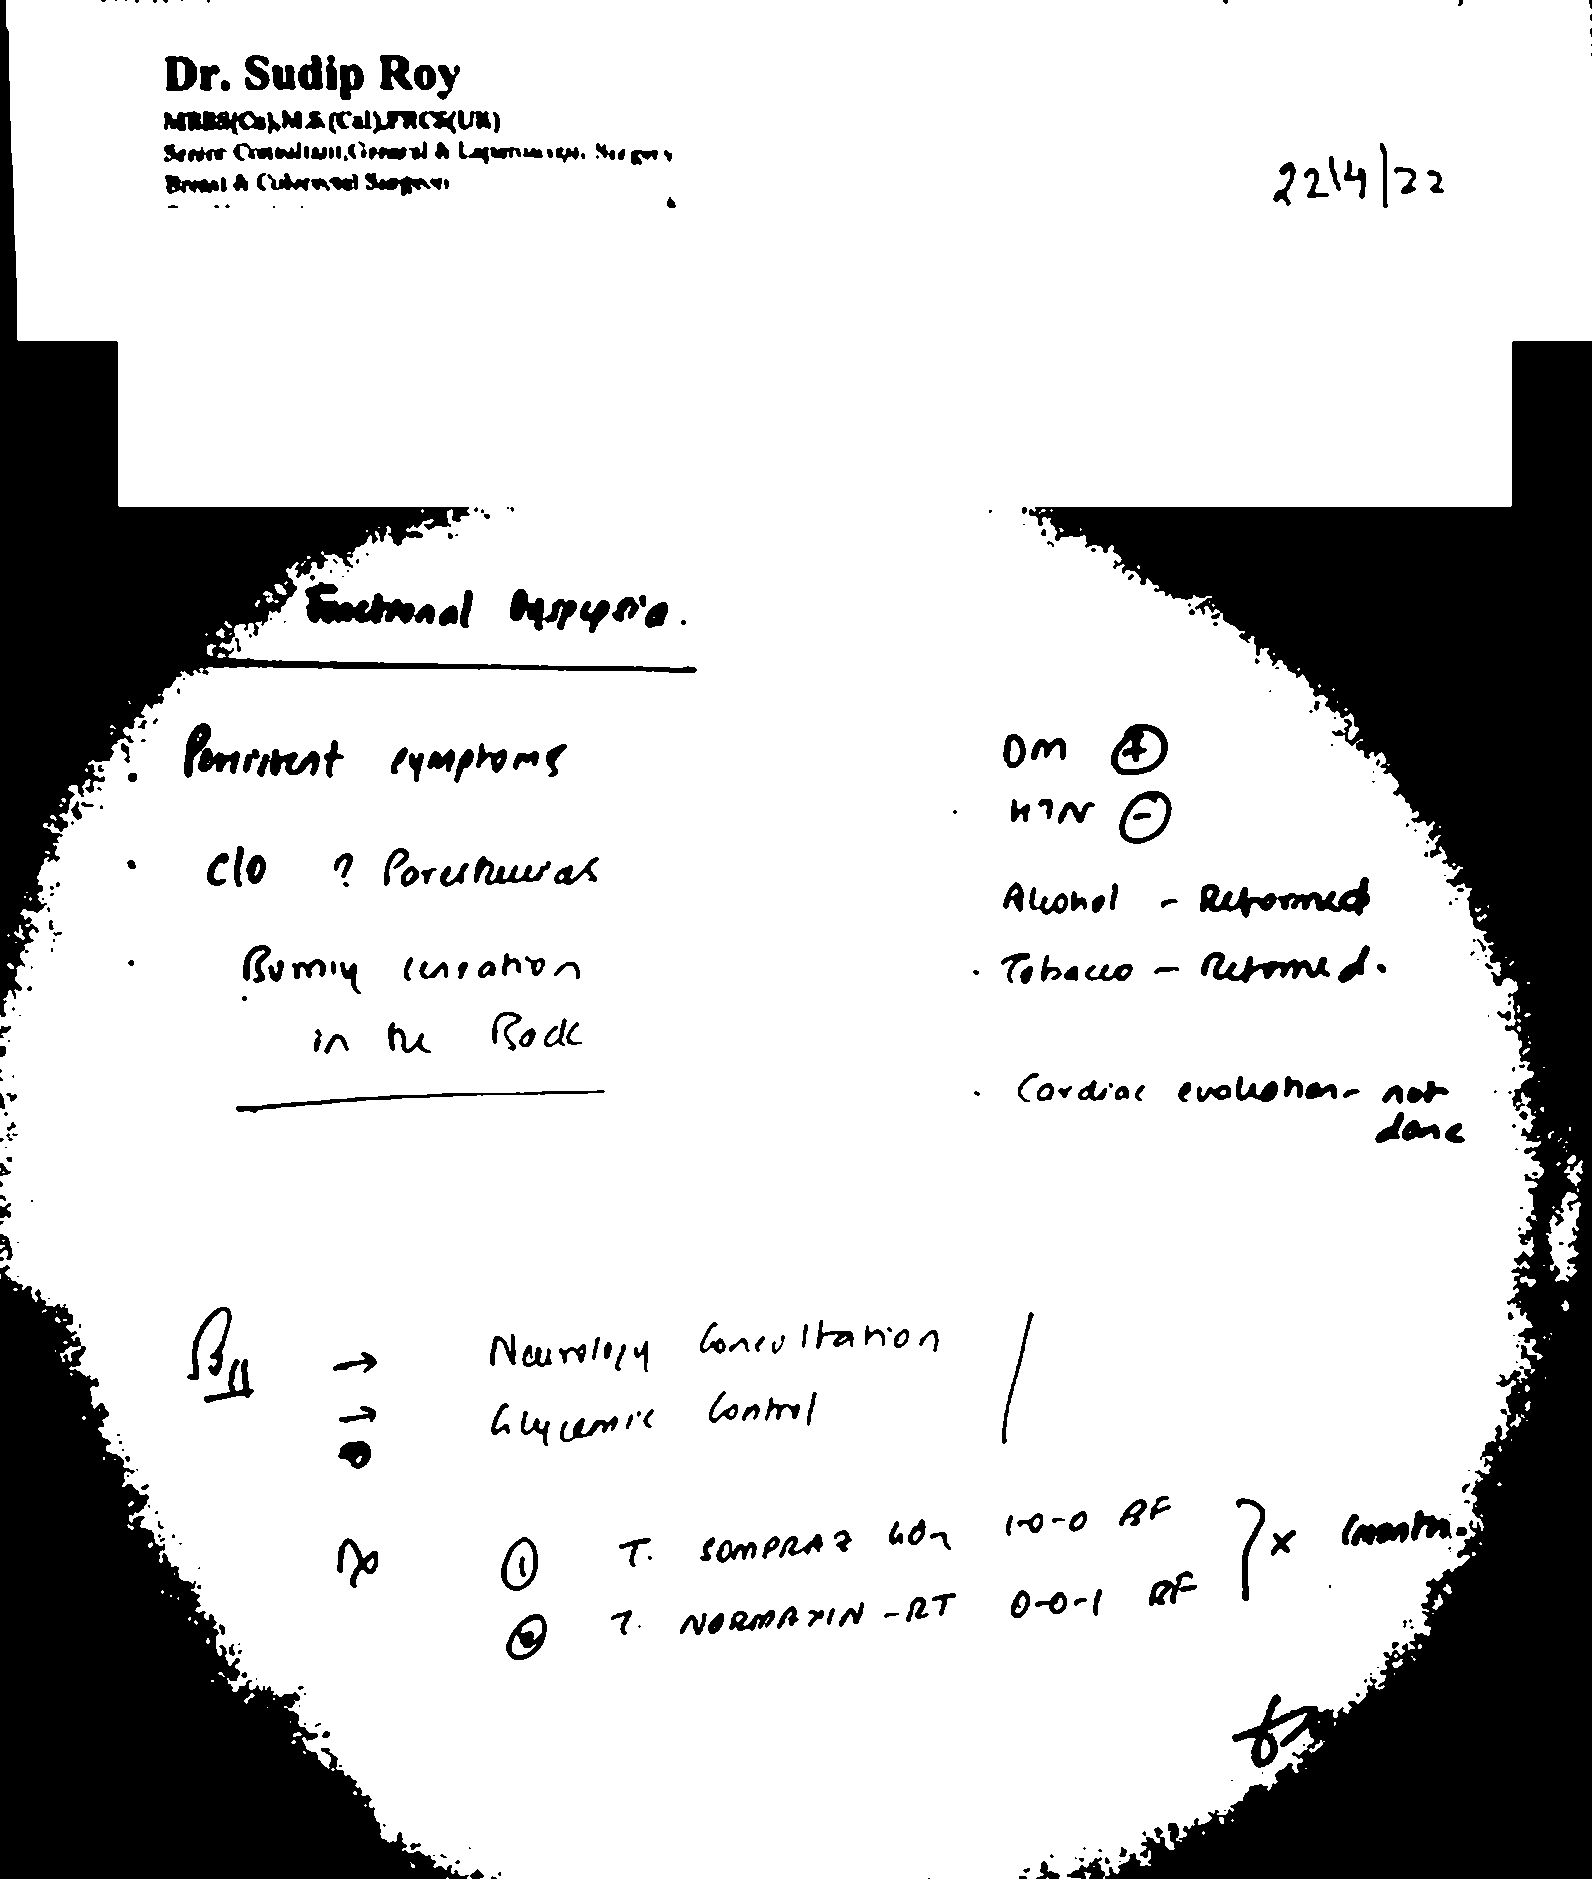 Dr. Sudip Roy
MBBS(Cal),M.S.(Cal),FRCS(UK)
Senior Consultant,General & Laparoscopic Surgery
Breast & Colorectal Surgeon
22/4/22
Functional Dyspepsia.
Persistent symptoms
C/O ? Paresthesias
Burning sensation
in the Back
DM +
HTN -
Alcohol - Reformed
Tobacco - Reformed.
Cardiac evaluation - not
done
→ Neurology Consultation
→ Glycemic Control
① T. SOMPRAZ 40 1-0-0 BF
② T. NORMAXIN-RT 0-0-1 BF
} x